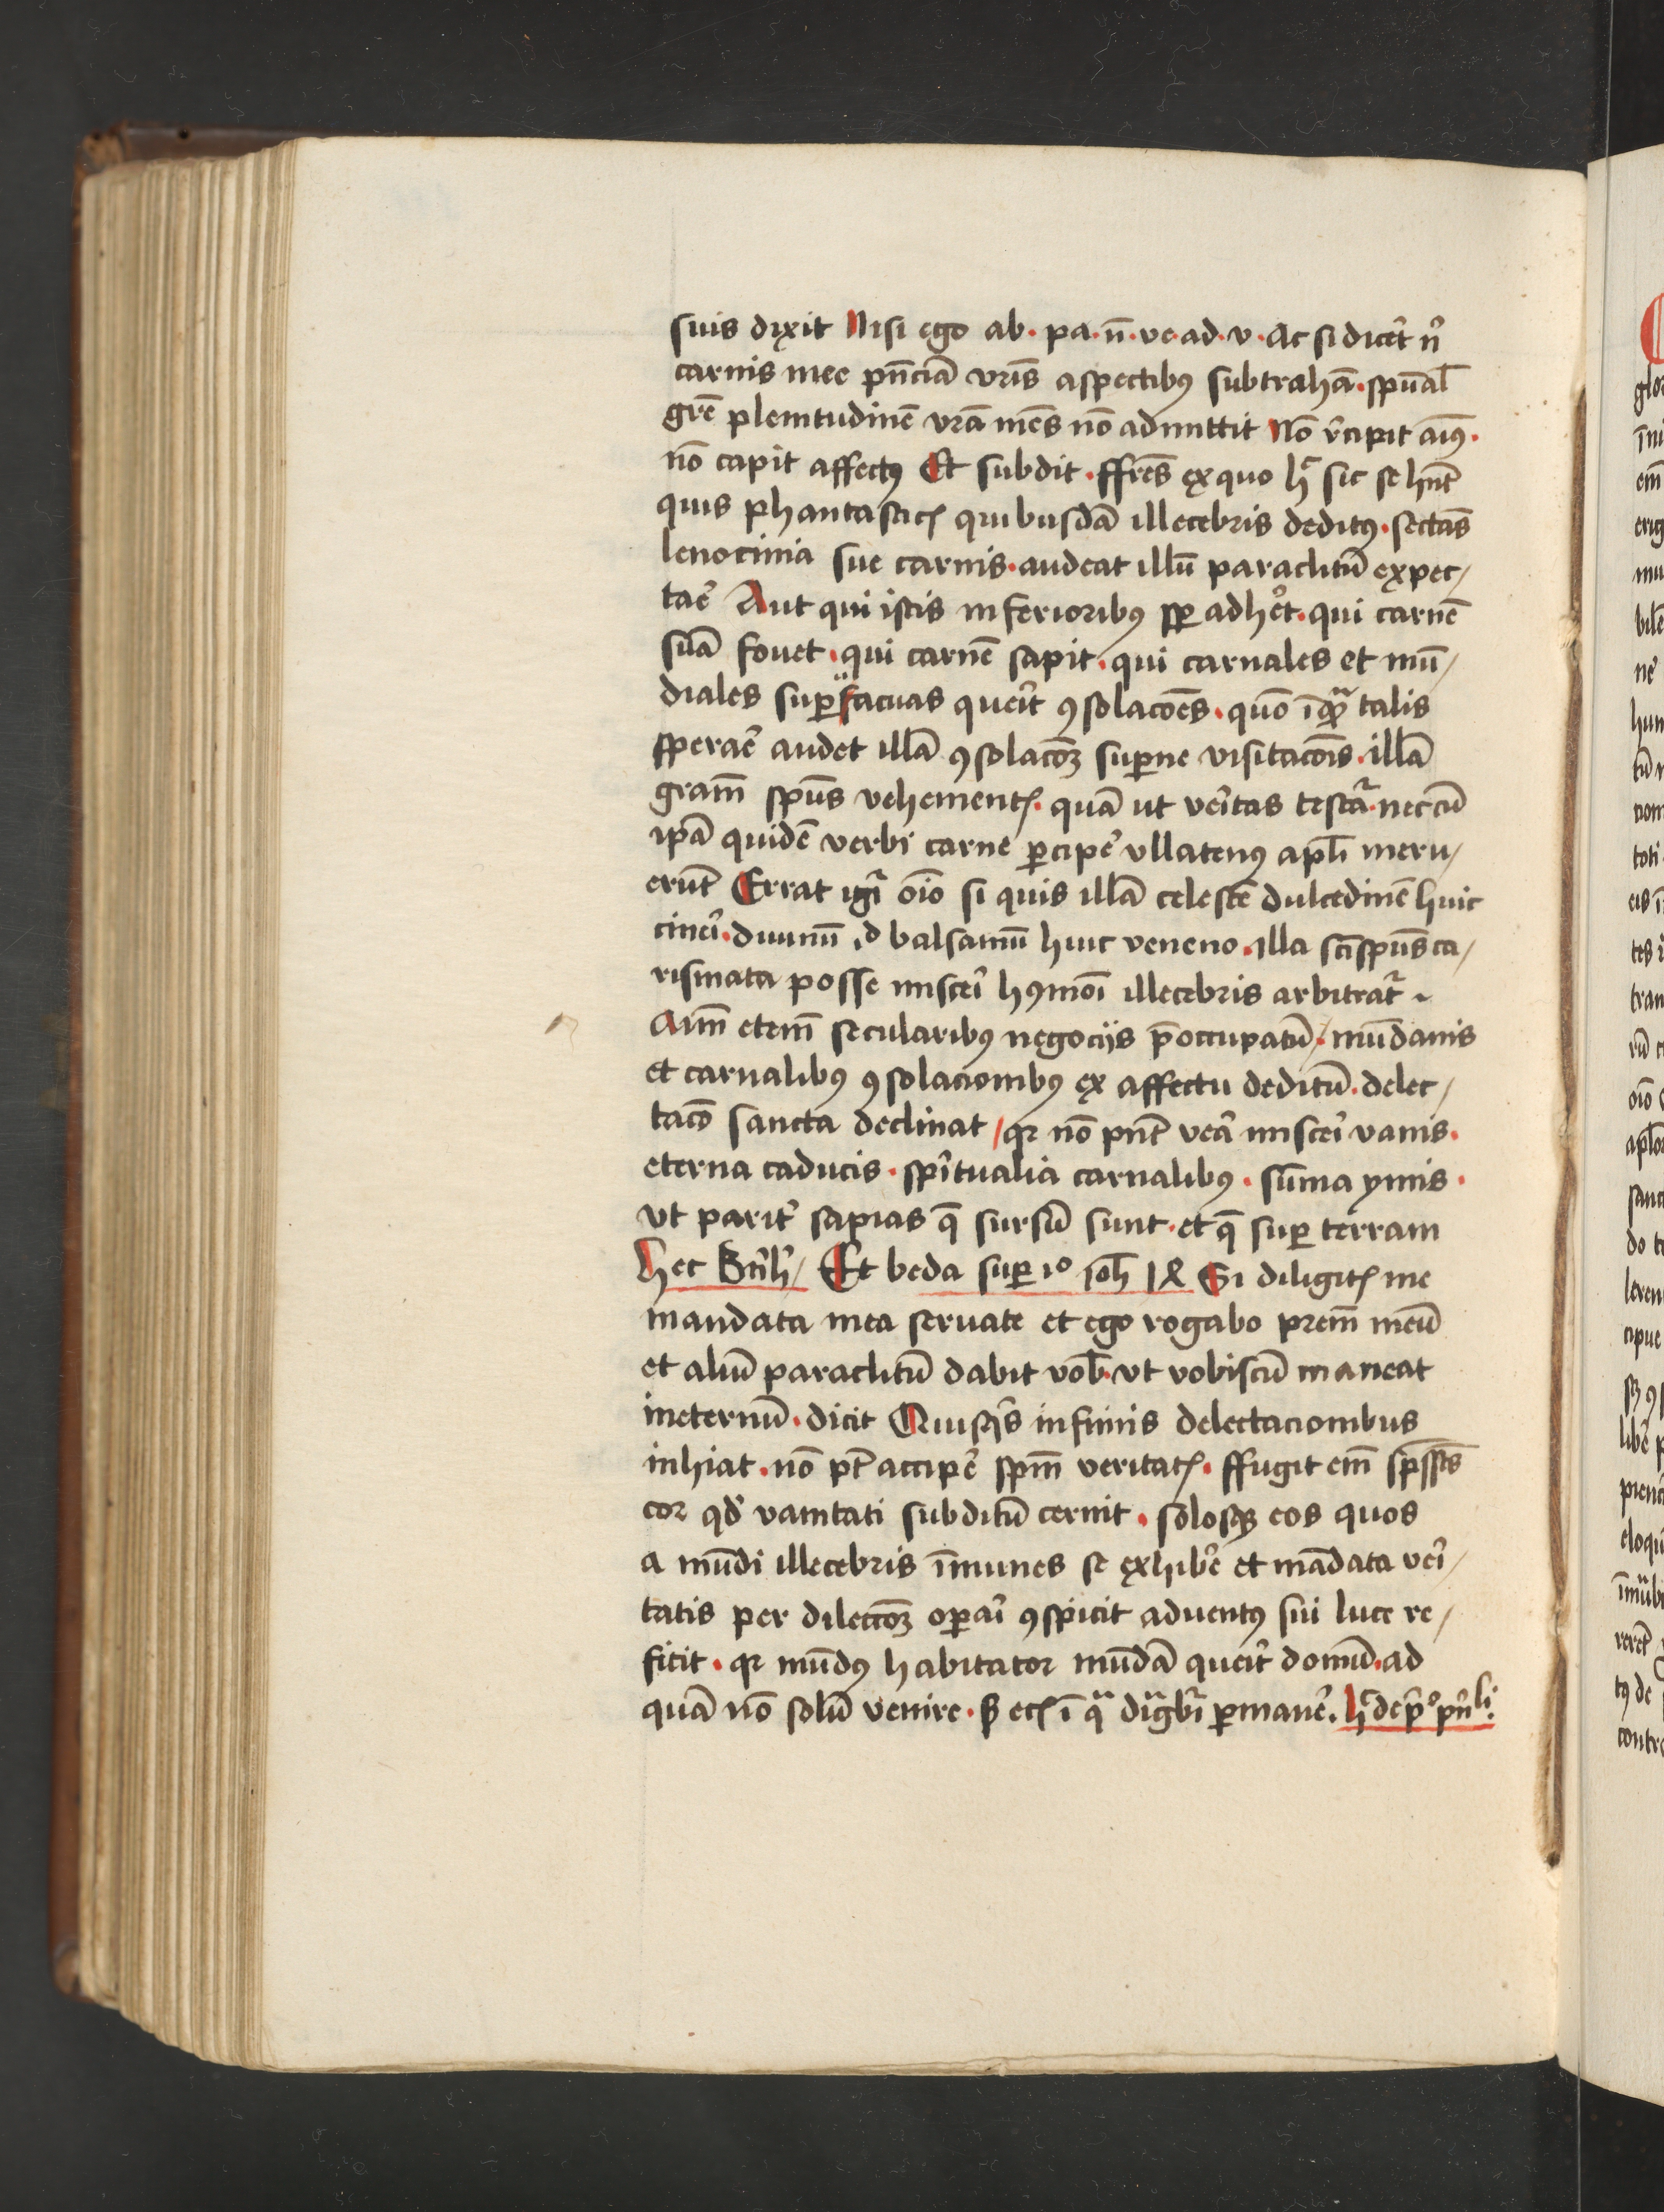 suis dixit Nisi ego ab· pa· n̄· ve· ad· v· Ac si dicēt nͥ
carnis mee pn̄ciā vr̄is aspectibꝰ subtrahā· spūal̄
gr̄e plenitudinē vr̄a mēs nō admittit Nō r̄cipit aīus·
nō capit affectꝰ Et subdit· ffr̄es ex quo hͨ sic se hn̄t
quis phantasticꝭ quibusdā illecebris deditꝰ· sectās
lenocinia sue carnis· audeat illū paraclitū expec/
tar̄e Aut qui istis inferioribꝰ sp̄ adhēt· qui carnē
suā fouet· qui carnē sapit· qui carnales et mū/
diales supuacuas querit ꝯsolacōes· quō īqͣ talis
sperar̄e audet illā ꝯsolacōꝫ sup̄ne visitacōis· illā
gram̄ spūs vehementꝭ· quā ut vēitas testaͬ· nec cū
ipā quidē verbi carne p̄cipē vllatenꝰ apl̄i meru/
erūt Errat igͥ oīo si quis illā celestē dulcedinē huic
cineri· diuinū id balsamū huic veneno· illa sc̄i spūs ca/
rismata posse miscēi hꝰmōi illecebris arbitratͬ ~
Aīm eteni᷑ secularibꝰ negocijs p̄occupatū/· mūdanis
et carnalibꝰ ꝯsolacionibꝰ ex affectu deditū· delec/
tacō sancta declinat/ qꝛ nō pn̄t vēa miscēi vanis·
eterna caducis· spīritualia carnalibꝰ· sūma ymis·
vt paritͥ sapias q̄ sursū sunt· et q̄ sup terram
Hec Bern̄h/ Et beda sup io ioh 14 Si diligitꝭ me
mandata mea seruate et ego rogabo prem̄ meū
et aliū paraclitū dabit vob̄· vt vobiscū maneat
ineternū· dicit Quisqͥs infimis delectacionibus
inhiat· nō pt̄ accipē spm̄ veritatꝭ· ffugit em̄ sp̄s scs̄
cor qd̄ vanitati subditū cernit· solosqꝫ eos quos
a mūdi illecebris īmunes se exhibēe et mādata vēi/
tatis per dilectōꝫ op̄ai ꝯspicit aduentꝰ sui luce re/
ficit· qꝛ mūdꝰ habitator mūdā queīt domū· ad
quā nō solū venire· sꝫ etꝭ ī qͣ dignabiͬ p̄manē̄·